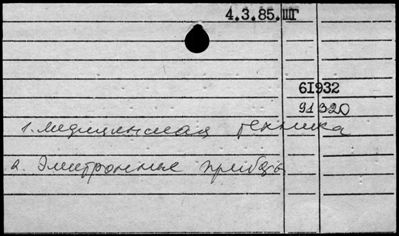 4.3.85.ШГ
61932
91320
1. медицинская техника
2. Электронные приборы